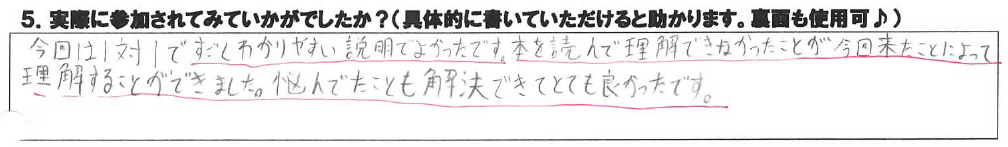 5. 実際に参加されてみていかがでしたか？（具体的に書いていただけると助かります。裏面も使用可♪）
今回は1対1ですごくわかりやすい説明でよかったです。本を読んで理解できなかったことが今回来たことによって
理解することができました。悩んでたことも解決できてとても良かったです。